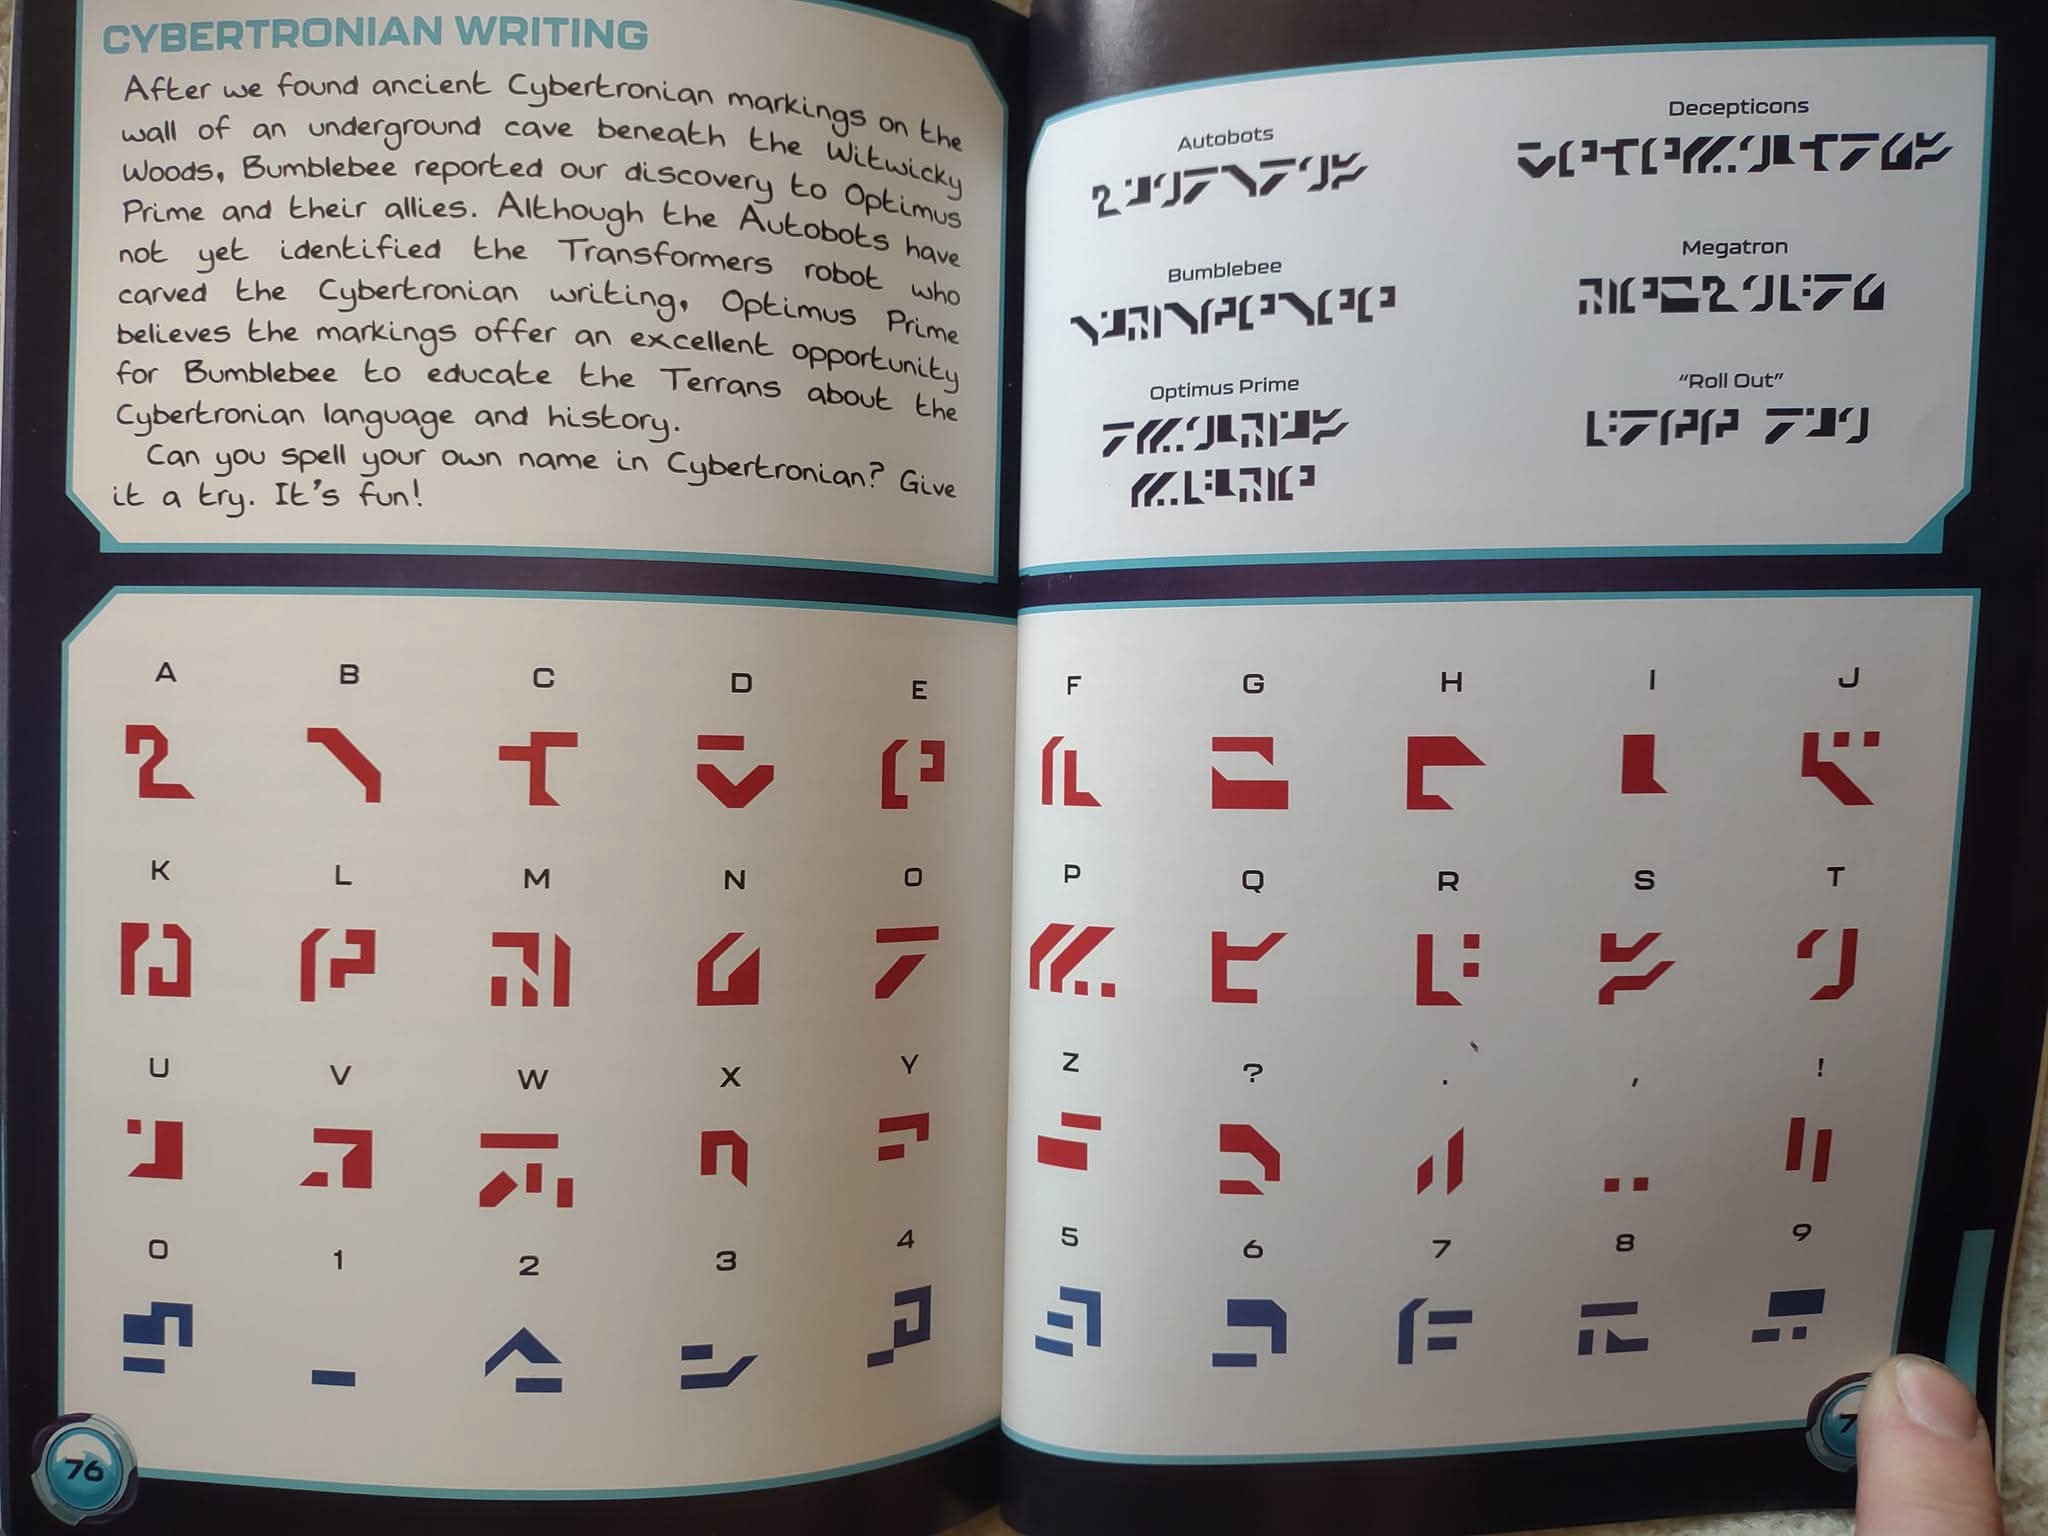 CYBERTRONIAN WRITING
After we found ancient Cybertronian markings on the
wall of an underground cave beneath the Witwicky
Woods, Bumblebee reported our discovery to Optimus
Prime and their allies. Although the Autobots have
not yet identified the Transformers robot who
carved the Cybertronian writing, Optimus Prime
believes the markings offer an excellent opportunity
for Bumblebee to educate the Terrans about the
Cybertronian language and history.
Can you spell your own name in Cybertronian? Give
it a try. It's fun!
A B C D E
K L M N O
U V W X Y
0 1 2 3 4
76
Autobots
Decepticons
Bumblebee
Megatron
Optimus Prime
"Roll Out"
F G H I J
P Q R S T
Z ? . , !
5 6 7 8 9